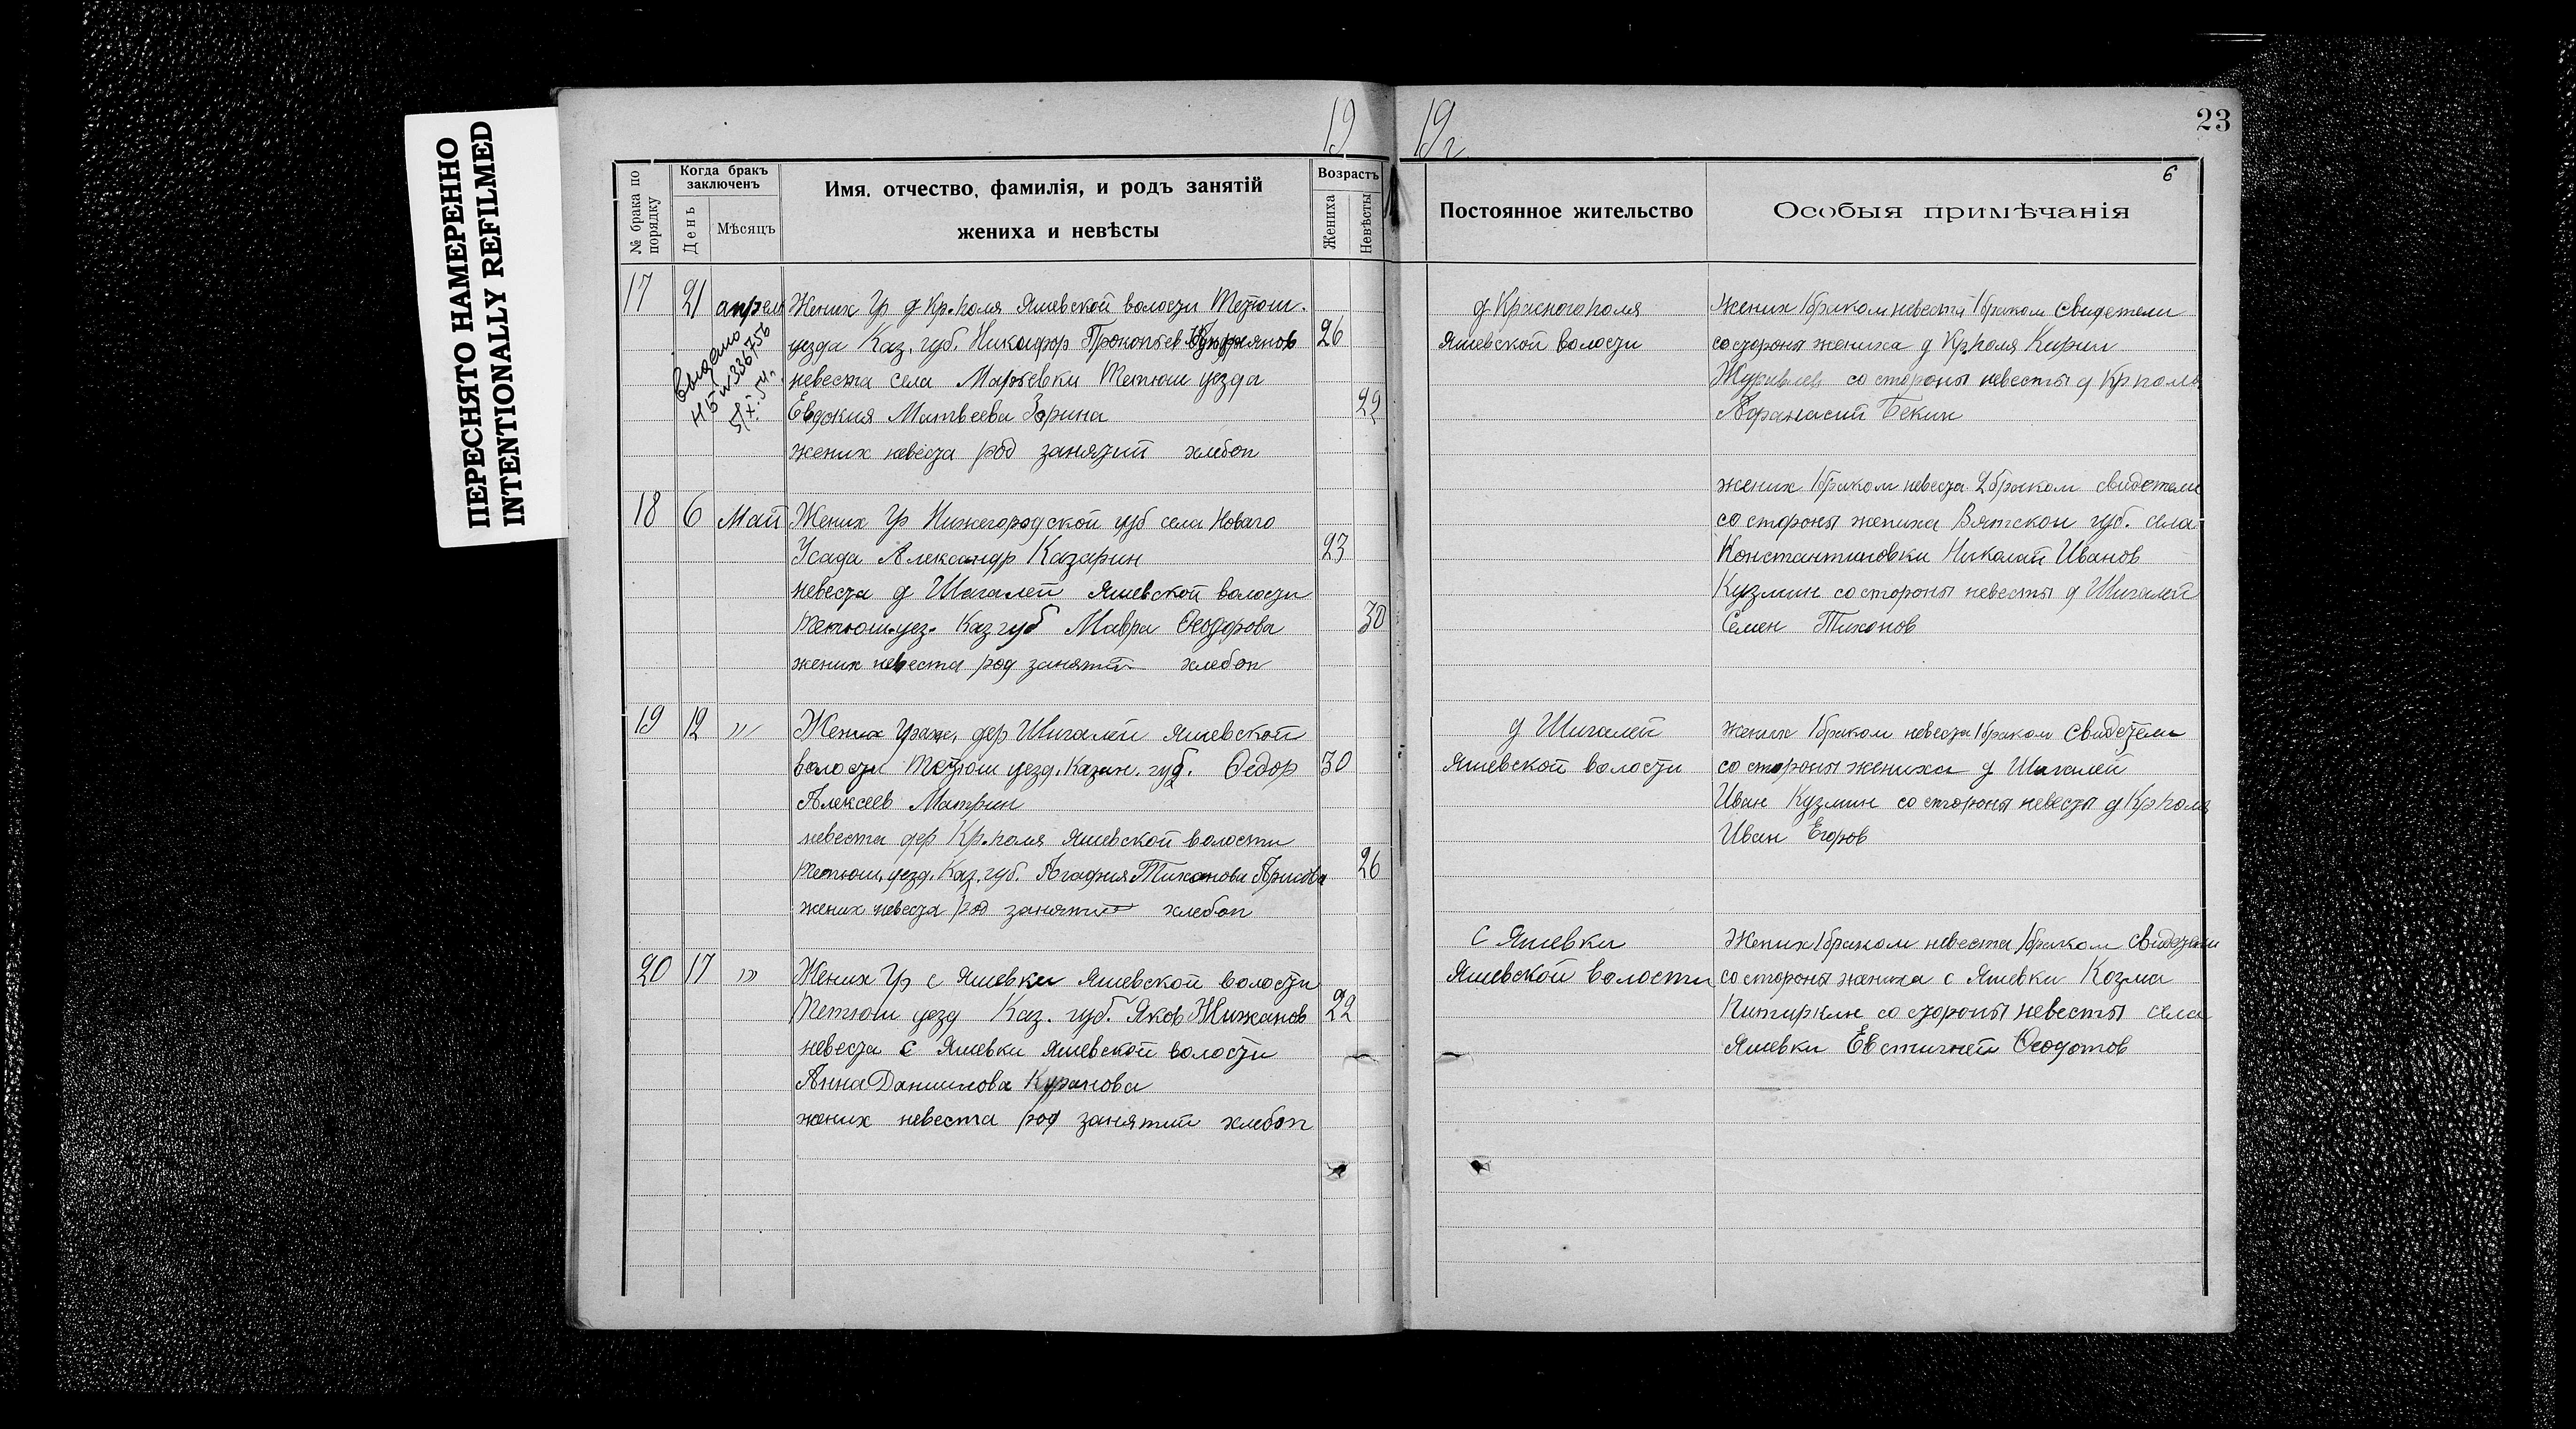 ПЕРЕСНЯТО НАМЕРЕННО
INTENTIONALLY REFILMED
19
№ брака по порядку
Когда бракъ заключенъ
День
Мѣсяцъ
Имя, отчество, фамилія, и родъ занятій
жениха и невѣсты
Возрастъ
Жениха
Невѣсты
17 21 апрель Жених Гр д Кр. поля Яшевской волости Тетюш.
уезда Каз. губ. Никифор Прокопьев 26
невеста села Марьевки Тетюш уезда
Евдокия Матвеева Зорина 22
жених невеста род занятий хлебоп
Выдано
НБ № 336756
5/X.54 г.
18 6 Май Жених Гр Нижегородской губ села Новаго
Усада Александр Казарин 23
невеста д Шигалей Яшевской волости
Тетюш. уез. Каз губ Мавра Феодорова 30
жених невеста род занятий хлебоп
19 12 " Жених Граж. дер Шигалей Яшевской
волости Тетюш уезд. Казан. губ. Федор 30
Алексеев Матрин
невеста дер Кр. поля Яшевской волости
Тетюш. уезд. Каз. губ. Агафия Тиханова 26
жених невеста род занятий хлебоп
20 17 " Жених Гр с Яшевки Яшевской волости
Тетюш уезд Каз. губ. Яков Нижанов 22
невеста с Яшевки Яшевской волости
Анна Данилова Куранова
жених невеста род занятий хлебоп
19 г.
23
6
Постоянное жительство
Особыя примѣчанія
д Красного поля
Яшевской волости
жених 1 браком невеста 1 браком свидетели
со стороны жениха д Кр. поля Кирил
Журавлев со стороны невесты д Кр поля
Афанасий Бекин
жених 1 браком невеста 2 браком свидетели
со стороны жениха Вятской губ. села
Константиновки Николай Иванов
Кузмин со стороны невесты д Шигалей
Семен Тихонов
д Шигалей
Яшевской волости
жених 1 браком невеста 1 браком свидетели
со стороны жениха д Шигалей
Иван Кузмин со стороны невесты д Кр поля
Иван Егоров
с Яшевки
Яшевской волости
Жених 1 браком невеста 1 браком свидетели
со стороны жениха с Яшевки Козма
Питиркин со стороны невесты села
Яшевки Евстигней Феодотов